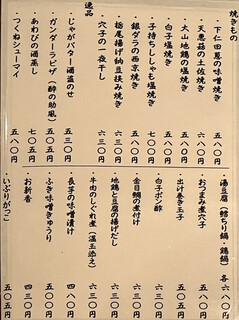 焼きもの
・下仁田葱の味噌焼き 五八〇円
・天恵菇の土佐焼き 五八〇円
・大山地鶏の塩焼き 五八〇円
・白子塩焼き 五八〇円
・子持ちししゃも塩焼き 七〇〇円
・銀ダラの西京焼き 五八〇円
・栃尾揚げ納豆挟み焼き 六三〇円
・穴子の一夜干し 六三〇円
逸品
・じゃがバター酒盗のせ 五三〇円
・ガンダーラピザ（酔の助風） 五八〇円
・あわびの酒蒸し 五八〇円
・つくねシューマイ 五八〇円
・湯豆腐（鱈ちり鍋・鶏鍋） 各六〇〇円
・おつまみ煮穴子 五八〇円
・出汁巻き玉子 五五〇円
・白子ポン酢 六三〇円
・金目鯛の煮付け 六三〇円
・地鶏と豆腐の揚げだし 六三〇円
・牛肉のしぐれ煮（温玉添え） 六三〇円
・長芋の味噌漬け 四八〇円
・ふき味噌きゅうり 五〇五円
・お新香 四三〇円
・いぶりがっこ 五〇五円